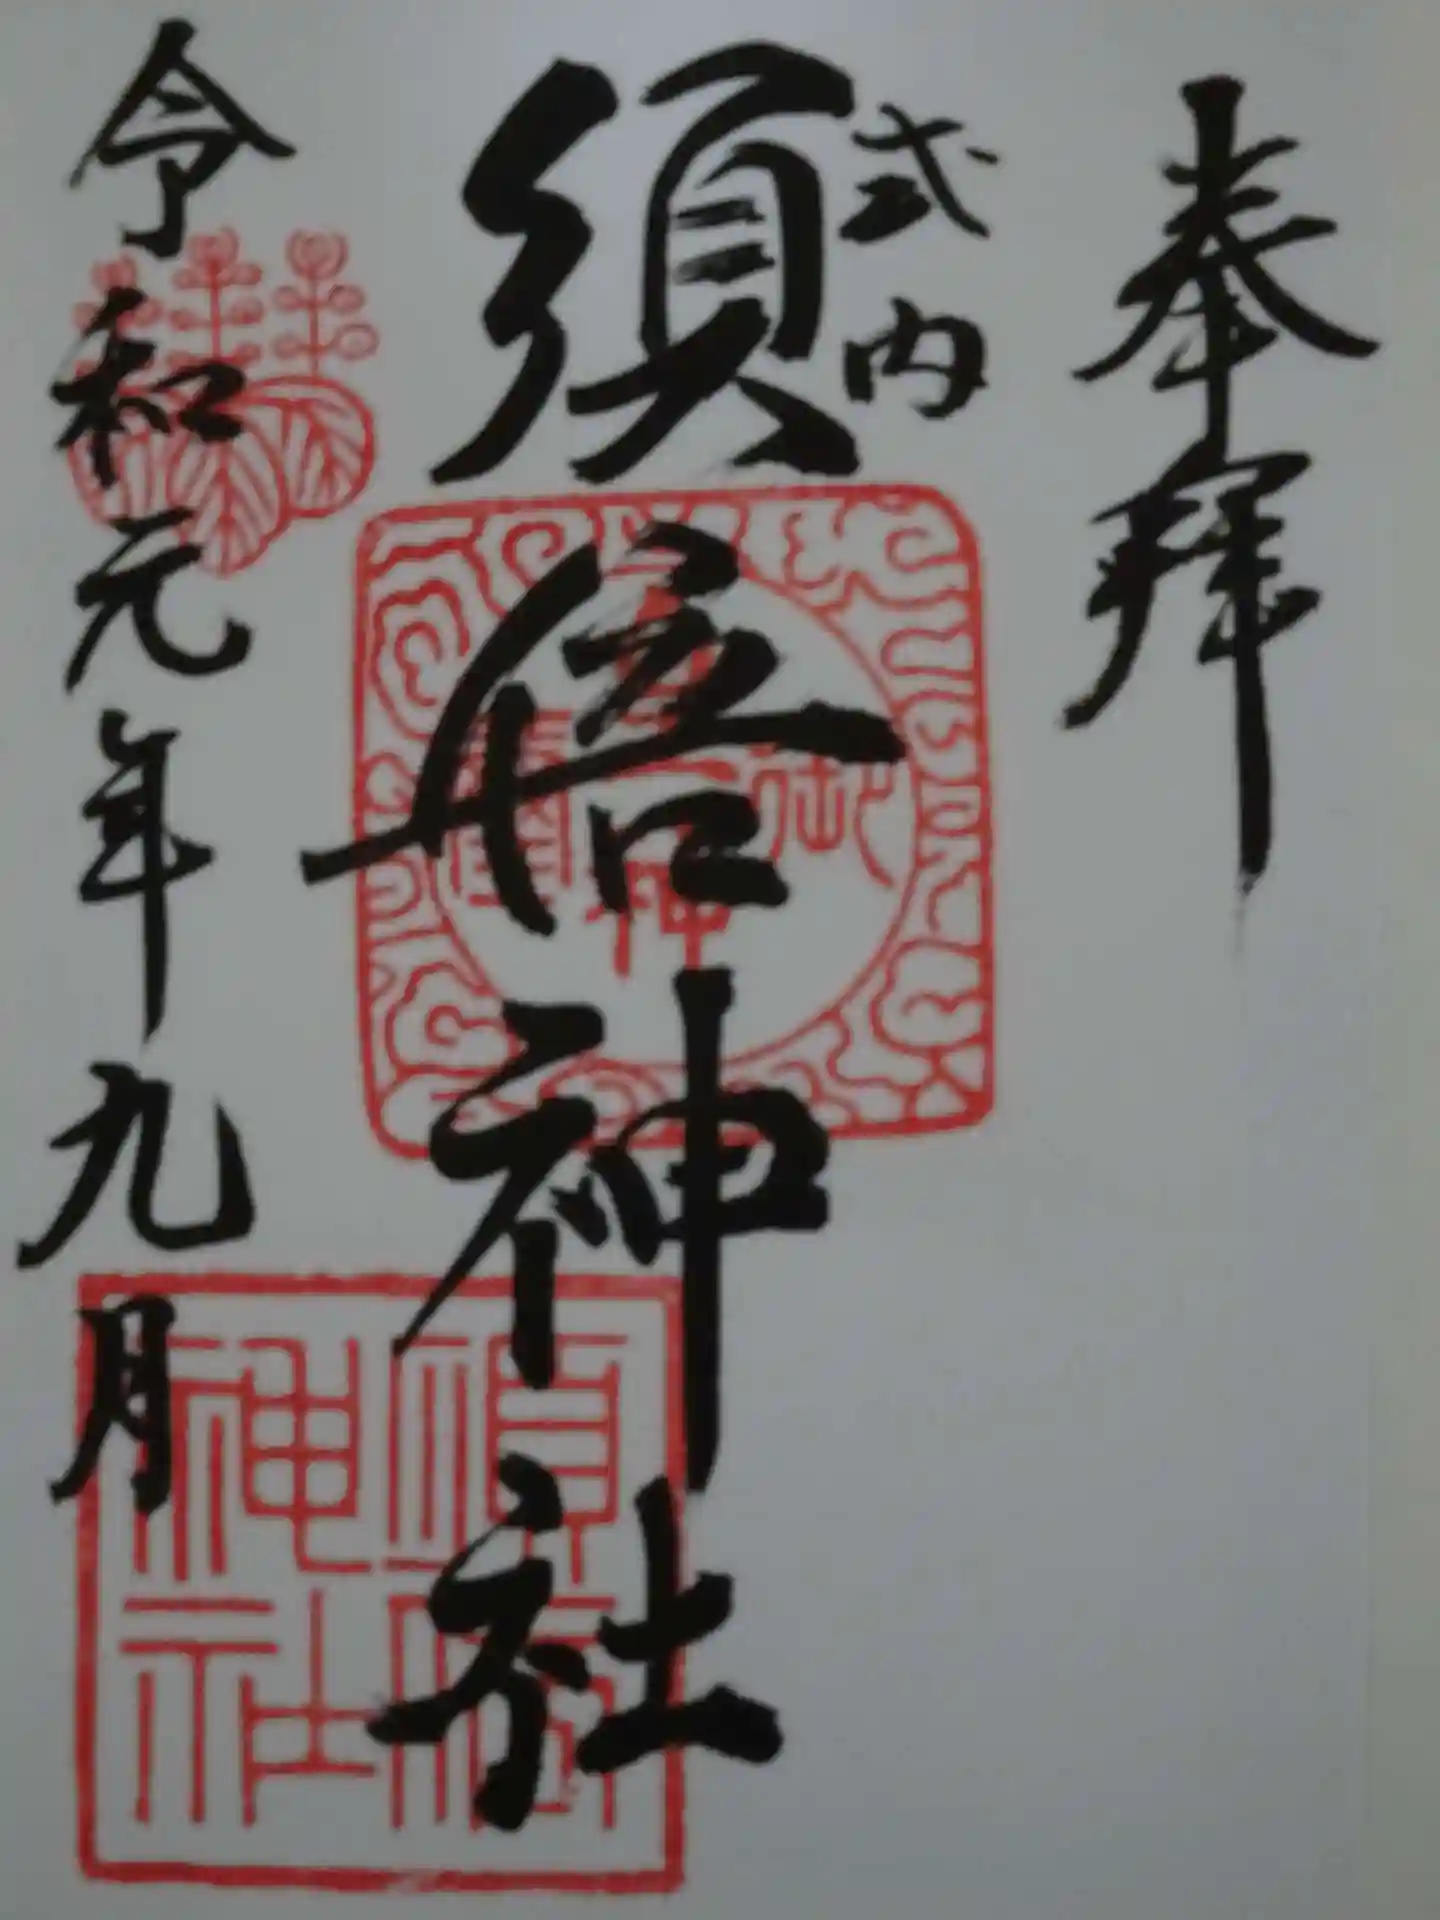 奉拝
式内
須倍神社
令和元年九月
須倍
神社